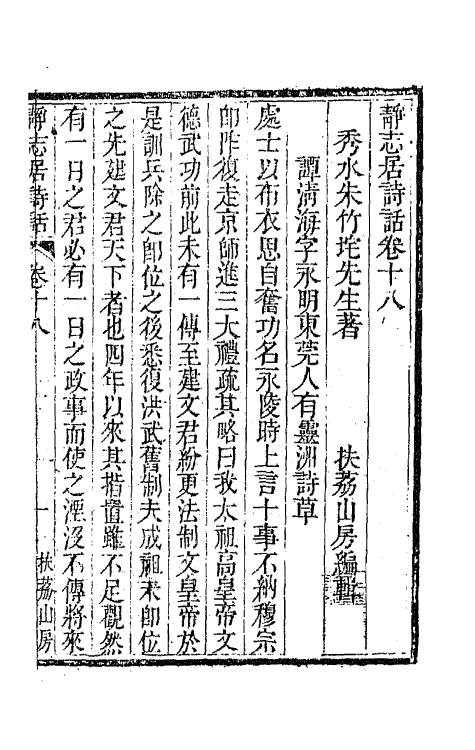 靜志居詩話卷十八
秀水朱竹垞先生著　扶荔山房編輯
譚淸海字永明東莞人有靈洲詩草
處士以布衣思自奮功名永陵時上言十事不納穆宗
卽阼復走京師進三大禮疏其略曰我太祖高皇帝文
德武功前此未有一傳至建文君紛更法制文皇帝於
是訓兵除之卽位之後悉復洪武舊制夫成祖未卽位
之先建文君天下者也四年以來其措置雖不足觀然
有一日之君必有一日之政事而使之湮沒不傳將來
靜志居詩話　卷十八　一　扶荔山房